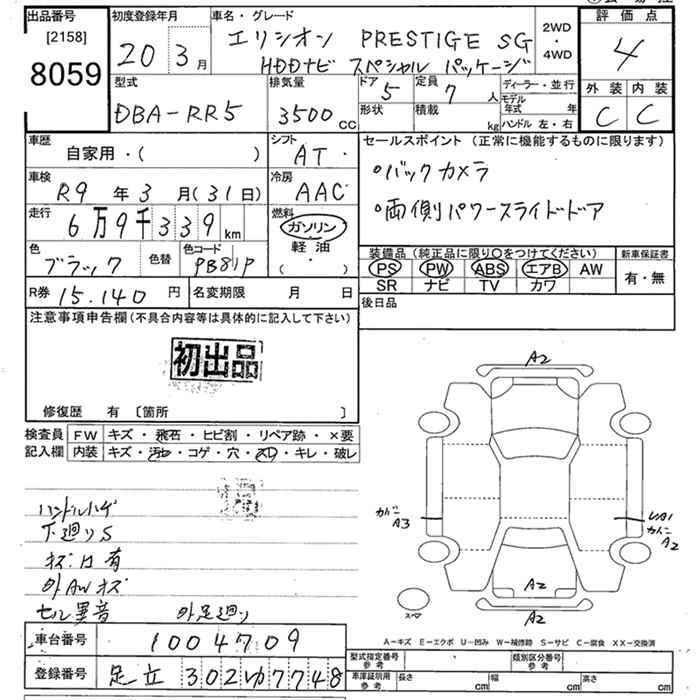 出品番号
[2158]
8059
初度登録年月
20 3月
車名・グレード
エリシオン PRESTIGE SG
HDDナビ スペシャル パッケージ
2WD
・
4WD
評価点
4
外装 内装
C C
型式
DBA-RR5
排気量
3500cc
ドア
5
形状
定員
7人
積載
kg
ディーラー・並行
モデル年式 年
ハンドル 左・右
車歴
自家用・( )
シフト
AT・
車検
R9年3月(31日)
冷房
AAC
走行
6万9千339km
燃料
ガソリン
軽油
( ・ )
色
ブラック
色替
色コード
PB81P
R券 15.140円
名変期限 月 日
セールスポイント (正常に機能するものに限ります)
・バックカメラ
・両側パワースライドドア
装備品 (純正品に限り○をつけてください)
PS PW ABS エアB AW
SR ナビ TV カワ
新車保証書
有・無
後日品
注意事項申告欄(不具合内容等は具体的に記入して下さい)
初出品
修復歴 有 〔箇所 〕
検査員記入欄
FW キズ・飛石・ヒビ割・リペア跡・×要
内装 キズ・汚レ・コゲ・穴・スレ・キレ・破レ
ハンドルハゲ
下廻りS
キズ凹有
外AWキズ
セル異音 外足廻り
A2
カバー
A3
UA1
カバー
A2
A2
スペア
A2
A-キズ E-エクボ U-凹み W-補修跡 S-サビ C-腐食 XX-交換済
車台番号 1004709
登録番号 足立 302ゆ7748
型式指定番号
参考
類別区分番号
参考
車庫証明用
参考
長さ cm 幅 cm 高さ cm